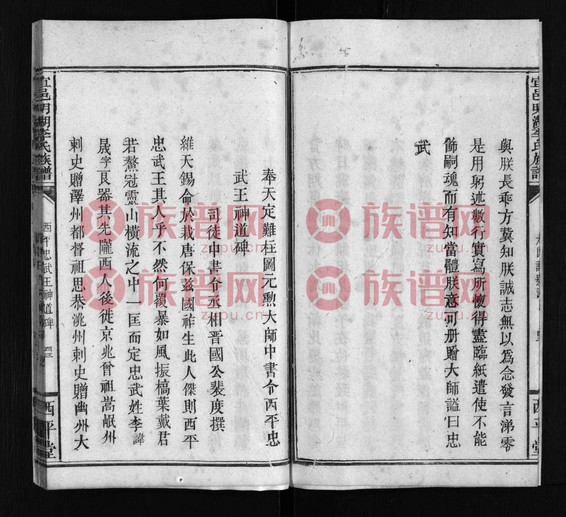 宜邑明湖李氏族譜
西平堂
與朕長乖方冀知朕誠志無以為念發言涕零
是用躬述數行實寫所懷得盡臨紙遣使不能
飾嗣魂而有知當體朕意可册贈大師謚曰忠
武
奉天定難柱國元勲大師中書令西平忠
武王神道碑
司徒中書令丞相晉國公裴度撰
維天錫命於我唐保茲國祚生此人傑則西平
忠武王其人乎不然何覆暴如風振槁葉戴君
若鰲冠靈山橫流之中一匡而定忠武姓李諱
晟字良器其先隴西人後徙京兆曾祖嵩岷州
刺史贈澤州都督祖思恭洮州刺史贈幽州大
宜邑明湖李氏族譜
西平忠武王神道碑
西平堂
族谱网
zupu.cn
族谱网
zupu.cn
族谱网
zupu.cn
族谱网
zupu.cn